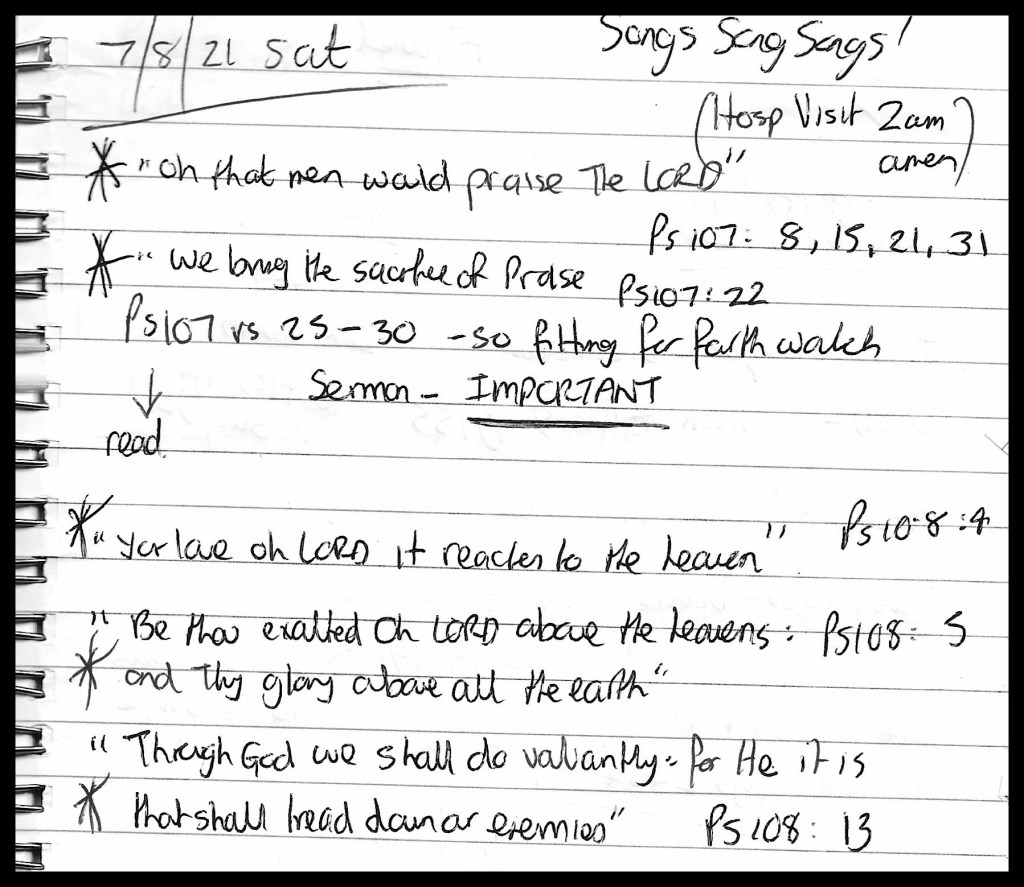 7/8/21 Sat
Songs Song Songs!
(Hosp Visit 2am
amen)
"Oh that men would praise The LORD"
Ps 107: 8, 15, 21, 31
" We bring the sacrifice of Praise Ps107:22
Ps107 vs 25-30 - so fitting for faith watch
Sermon - IMPORTANT
read
" Your love oh LORD it reaches to the heaven" Ps 108:4
" Be thou exalted Oh LORD above the heavens: Ps108: 5
and Thy glory above all the earth"
" Through God we shall do valiantly: for He it is
that shall tread down our enemies" Ps 108: 13